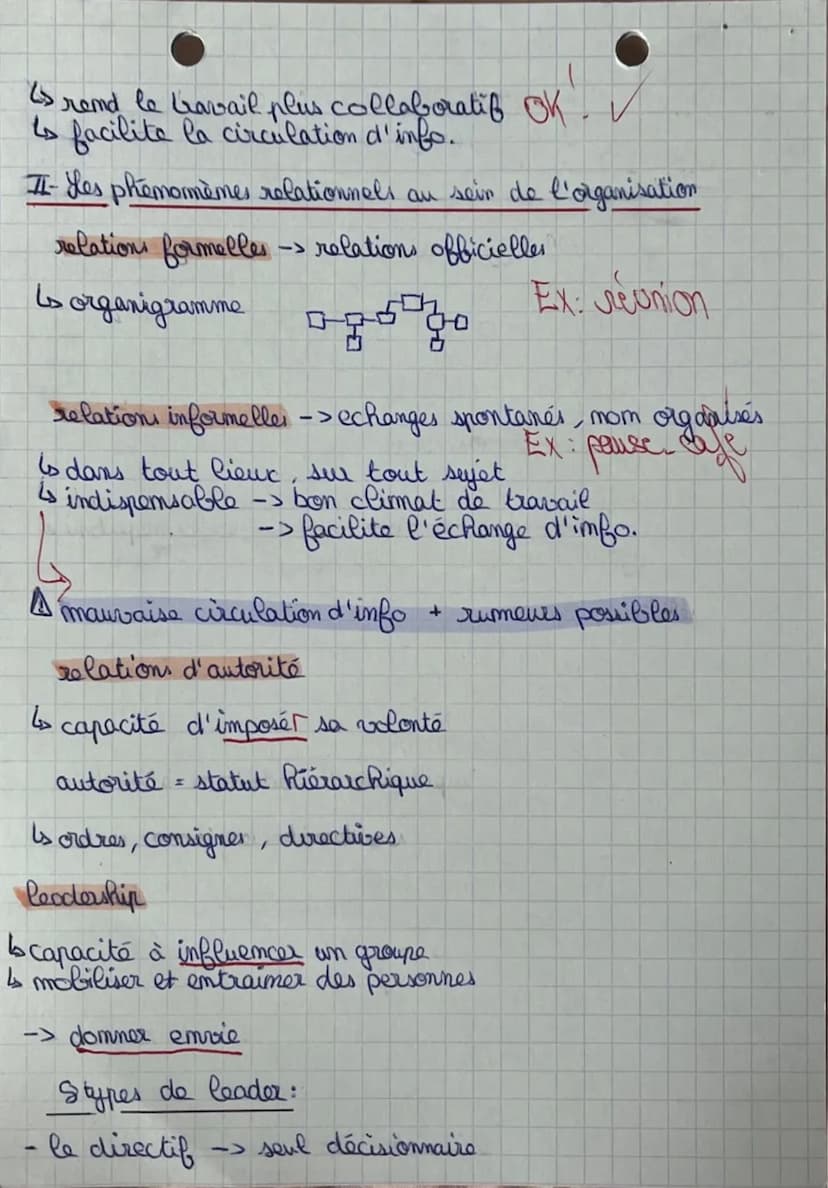 ↳ rend le travail plus collaboratif OK! ✓
↳ facilite la circulation d'info.
II- Les phénomènes relationnels au sein de l'organisation
relations formelles -> relations officielles
↳ organigramme Ex: réunion
relations informelles -> echanges spontanés, non organisés
Ex: pause-café
↳ dans tout lieux, sur tout sujet
↳ indispensable -> bon climat de travail
-> facilite l'échange d'info.
⚠ mauvaise circulation d'info + rumeurs possibles
relations d'autorité
↳ capacité d'imposér sa volonté
autorité = statut hiérarchique
↳ ordres, consignes, directives
leadership
↳ capacité à influencer un groupe
↳ mobiliser et entrainer des personnes
-> donner envie
types de leader:
- le directif -> seul décisionnaire